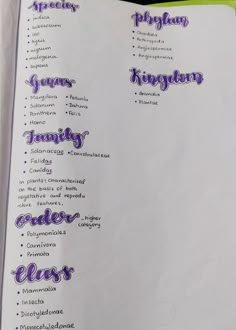 Species
• indica
• tuberosum
• leo
• tigris
• nigrum
• melongena
• sapiens
Genus
• Mangifera
• Solanum
• Panthera
• Homo
• Petunia
• Datura
• Felis
Family
• Solanaceae • Convolvulaceae
• Felidae
• Canidae
in plants characterised
on the basis of both
vegetative and reprodu
ctive features.
Order → higher
category
• Polymoniales
• Carnivora
• Primata
Class
• Mammalia
• Insecta
• Dicotyledonae
• Monocotyledonae
Phylum
• Chordata
• Arthropoda
• Angiospermae
• Angiospermae
Kingdom
• Animalia
• Plantae